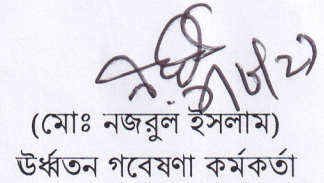 (মোঃ নজরুল ইসলাম)
ঊর্ধ্বতন গবেষণা কর্মকর্তা